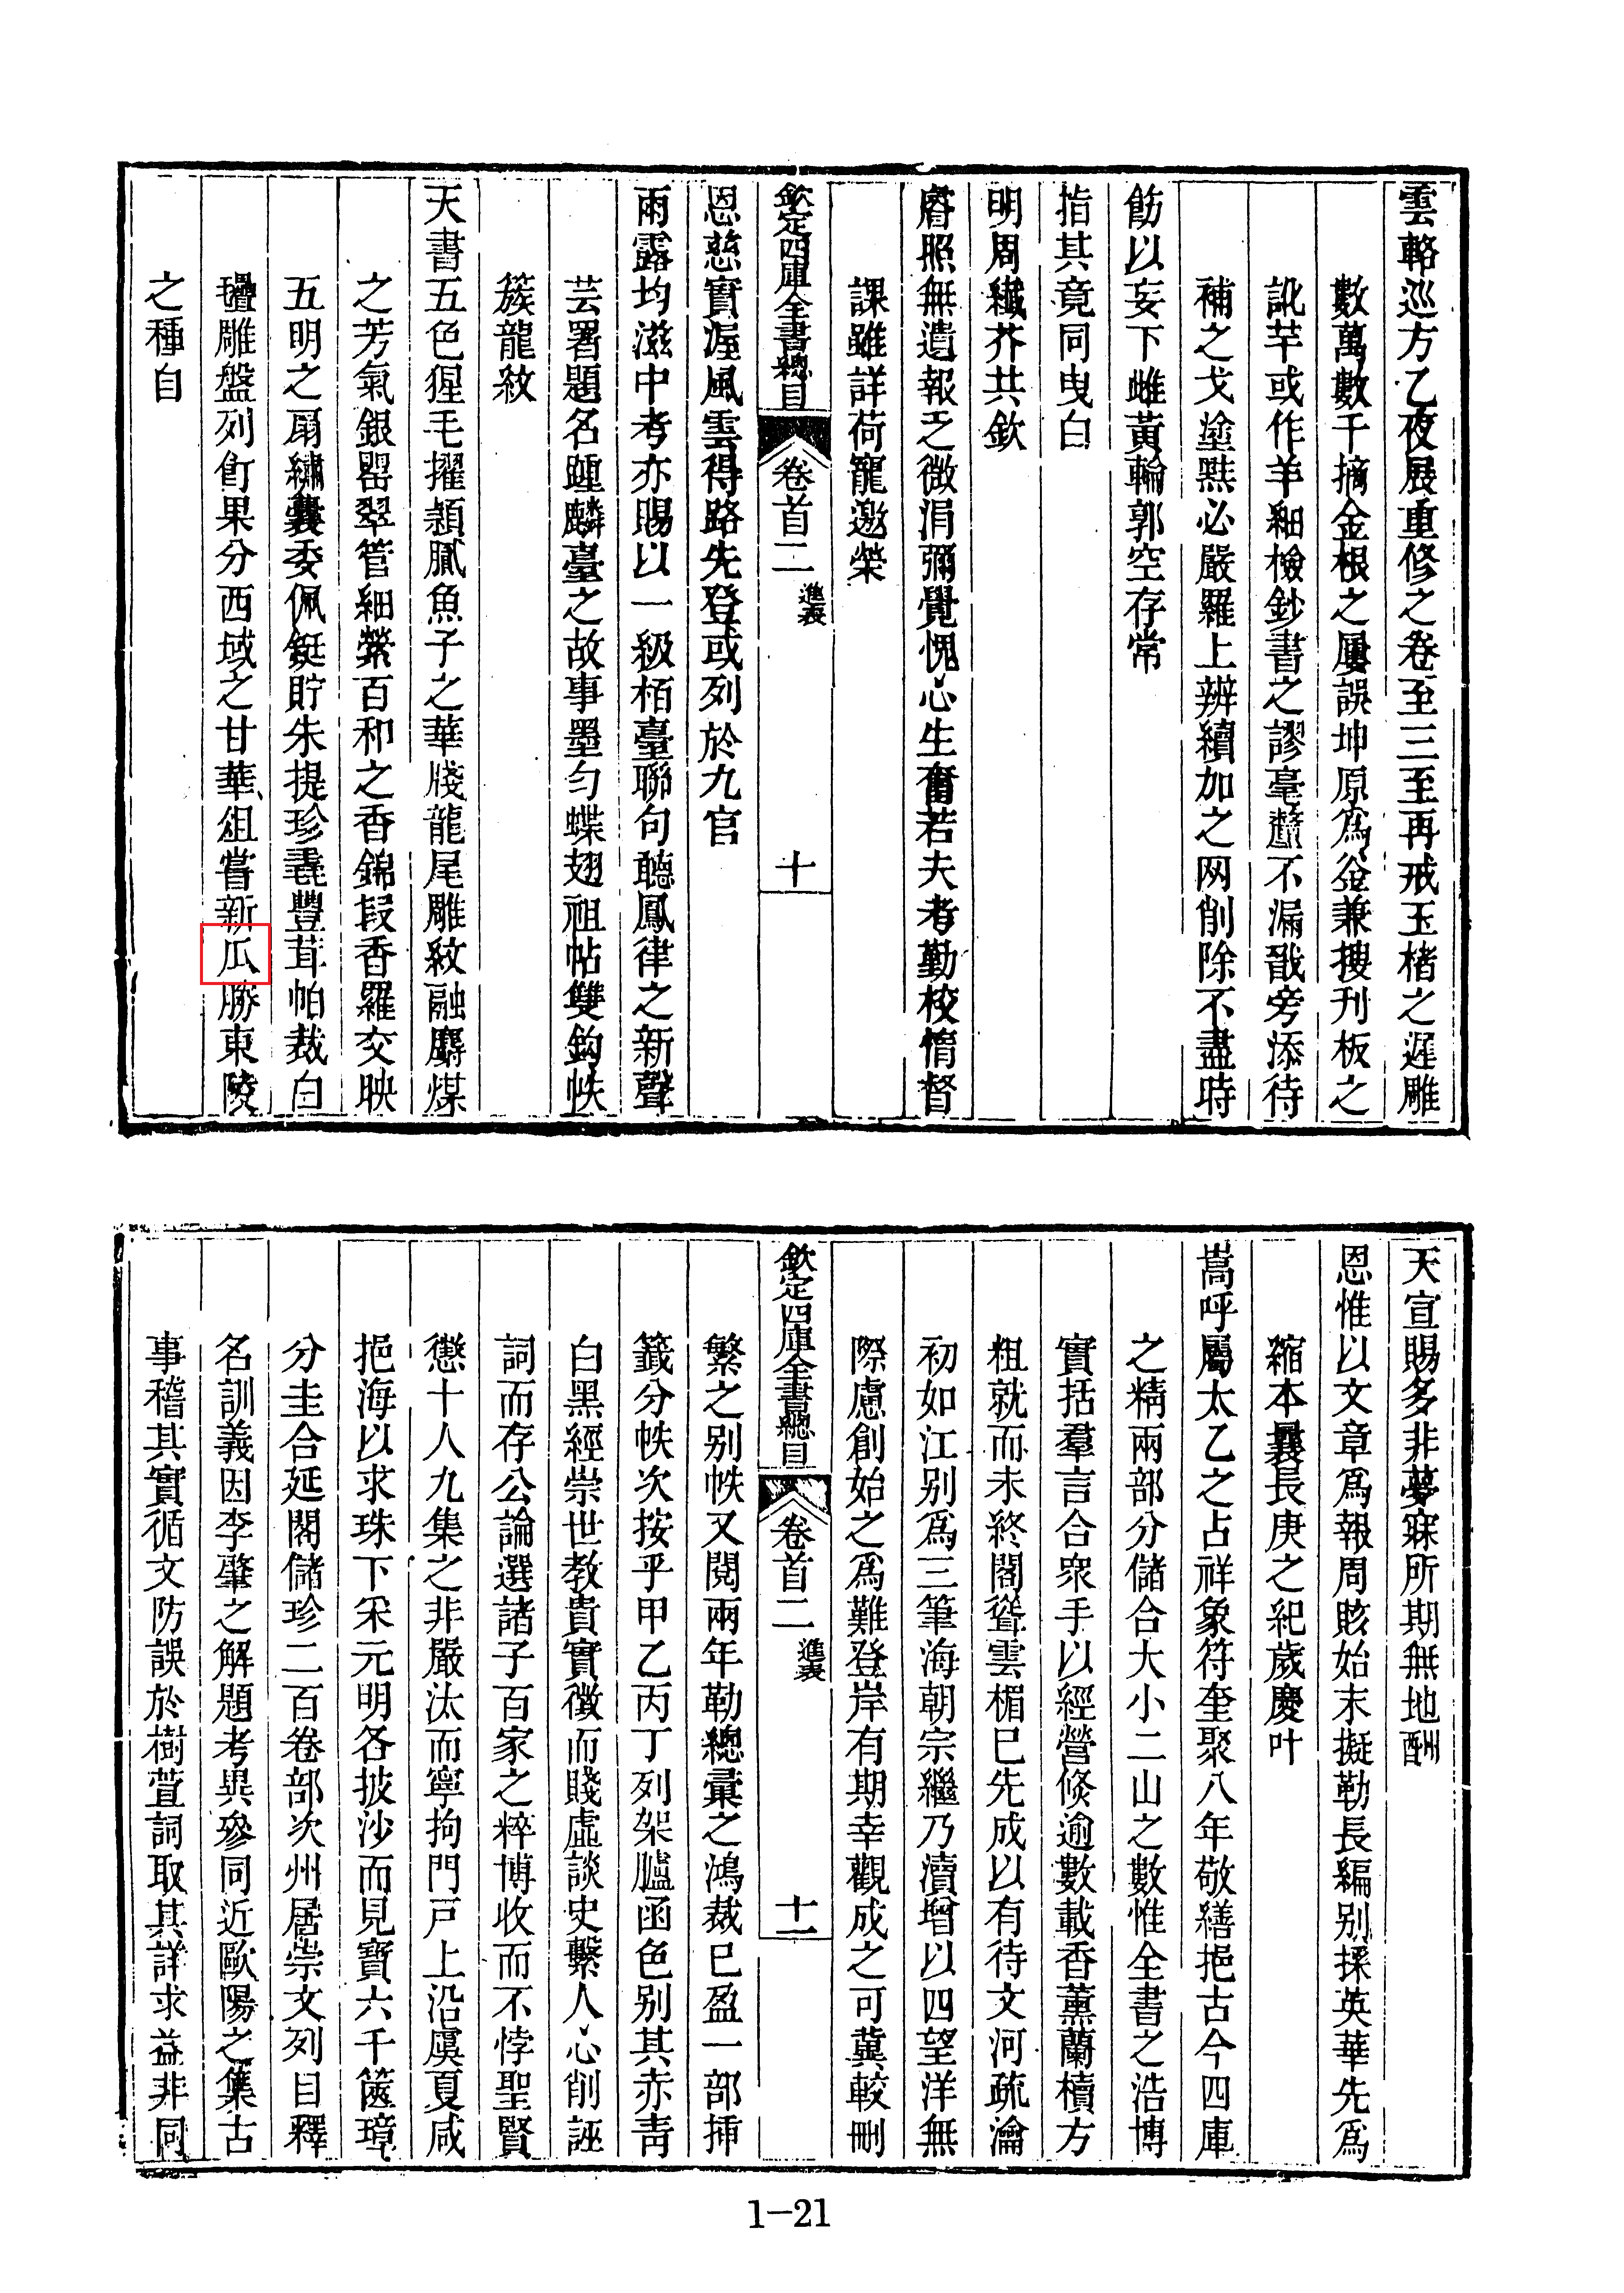 雲輅巡方乙夜展重修之卷至三至再戒玉楮之遲雕
數萬數千摘金根之屢誤坤原爲釡兼搜刋板之
訛芉或作羊細檢鈔書之謬毫釐不漏戠旁添待
補之戈塗㸃必嚴羅上辨續加之网削除不盡時
飭以妄下雌黃輪郭空存常
指其竟同曳白
明周纎芥共欽
睿照無遺報乏微涓彌覺愧心生奮若夫考勤校惰督
課雖詳荷寵邀榮
欽定四庫全書總目 卷首二 進表 十
恩慈實渥風雲得路先登或列於九官
雨露均滋中考亦賜以一級栢臺聯句聽鳳律之新聲
芸署題名踵麟臺之故事墨勻蝶翅袓帖雙鈎帙
簇龍紋
天書五色猩毛擢穎膩魚子之華牋龍尾雕紋融麝煤
之芳氣銀罌翠管細縈百和之香錦叚香羅交映
五明之扇繡囊委佩鋌貯朱提珍毳豐茸帕裁白
㲲雕盤列飣果分西域之甘華俎嘗新瓜勝東陵
之種自
天宣賜多非夢寐所期無地酬
恩惟以文章爲報周賅始末擬勒長編别採英華先爲
縮本曩長庚之紀歲慶叶
嵩呼屬太乙之占祥象符奎聚八年敬繕挹古今四庫
之精兩部分儲合大小二山之數惟全書之浩博
實括羣言合衆手以經營倐逾數載香薰蘭櫝方
粗就而未終閣聳雲楣已先成以有待文河疏瀹
初如江别爲三筆海朝宗繼乃瀆增以四望洋無
際慮創始之爲難登岸有期幸觀成之可冀較刪
欽定四庫全書總目 卷首二 進表 十一
繁之别帙又閱兩年勒總彙之鴻裁已盈一部揷
籤分帙次按乎甲乙丙丁列架臚函色别其赤靑
白黑經崇世教貴實徵而賤虛談史繫人心削誣
詞而存公論選諸子百家之粹博收而不悖聖賢
懲十人九集之非嚴汰而寧拘門戸上沿虞夏咸
挹海以求珠下采元明各披沙而見寶六千篋璋
分圭合延閣儲珍二百卷部次州居崇文列目釋
名訓義因李肇之解題考異參同近歐陽之集古
事稽其實循文防誤於樹萱詞取其詳求益非同
1—21